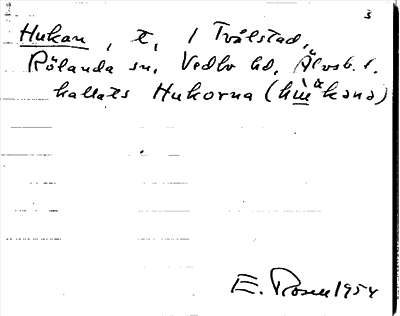 3
Hukan, t, i Tvålstad,
Rölanda sn, Vedbo hd, Älvsb. l.
kallats Hukorna (
E. Rosell 1954